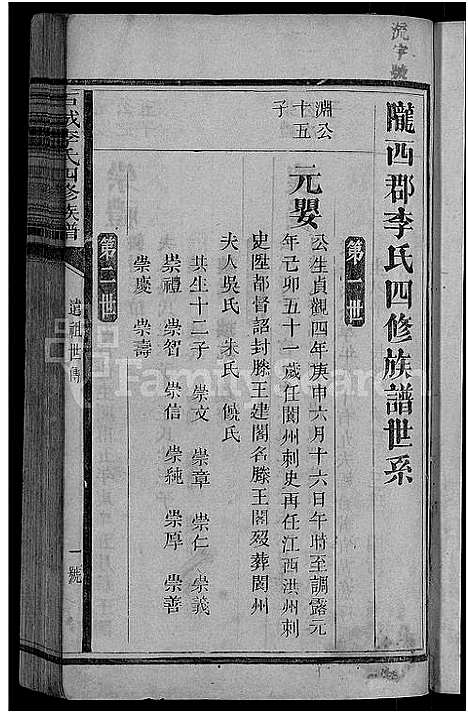 隴西郡李氏四修族譜世系
第一世
淵公
十五
子
元嬰
公生貞觀四年庚申六月十六日午時至調露元
年己卯五十一歲任閬州刺史再任江西洪州刺
史陞都督詔封滕王建閣名滕王閣歿葬閬州
夫人吳氏 朱氏 饒氏
共生十二子 崇文 崇章 崇仁 崇義
崇禮 崇智 崇信 崇純 崇厚 崇善
崇慶 崇壽
第二世
城李氏四修族譜
遠祖世傳
一號